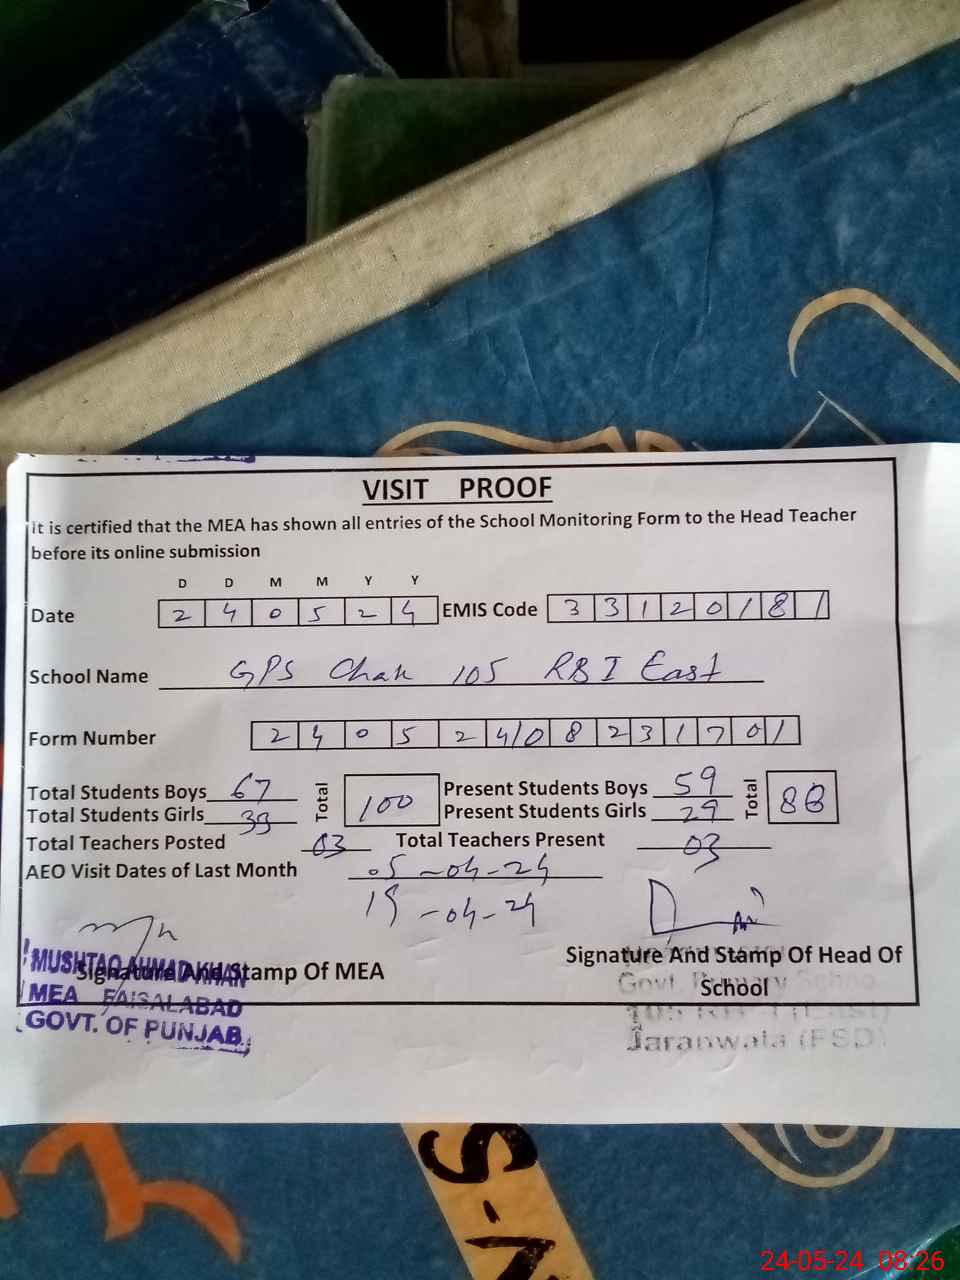 VISIT PROOF
It is certified that the MEA has shown all entries of the School Monitoring Form to the Head Teacher
before its online submission
D D M M Y Y
Date 2 4 0 5 2 4 EMIS Code 3 3 1 2 0 1 8 1
School Name GPS Chak 105 RB I East
Form Number 2 4 0 5 2 4 0 8 2 3 1 7 0 1
Total Students Boys 67 Total 100 Present Students Boys 59 Total 88
Total Students Girls 33 Present Students Girls 29
Total Teachers Posted 03 Total Teachers Present 03
AEO Visit Dates of Last Month 05-04-24
-04-24
Signature And Stamp Of MEA
MUSHTAQ AHMAD KHAN
MEA FAISALABAD
GOVT. OF PUNJAB
Signature And Stamp Of Head Of
School
Govt. Primary Schoo
Jaranwala (FSD)
S-N
24-05-24 08:26